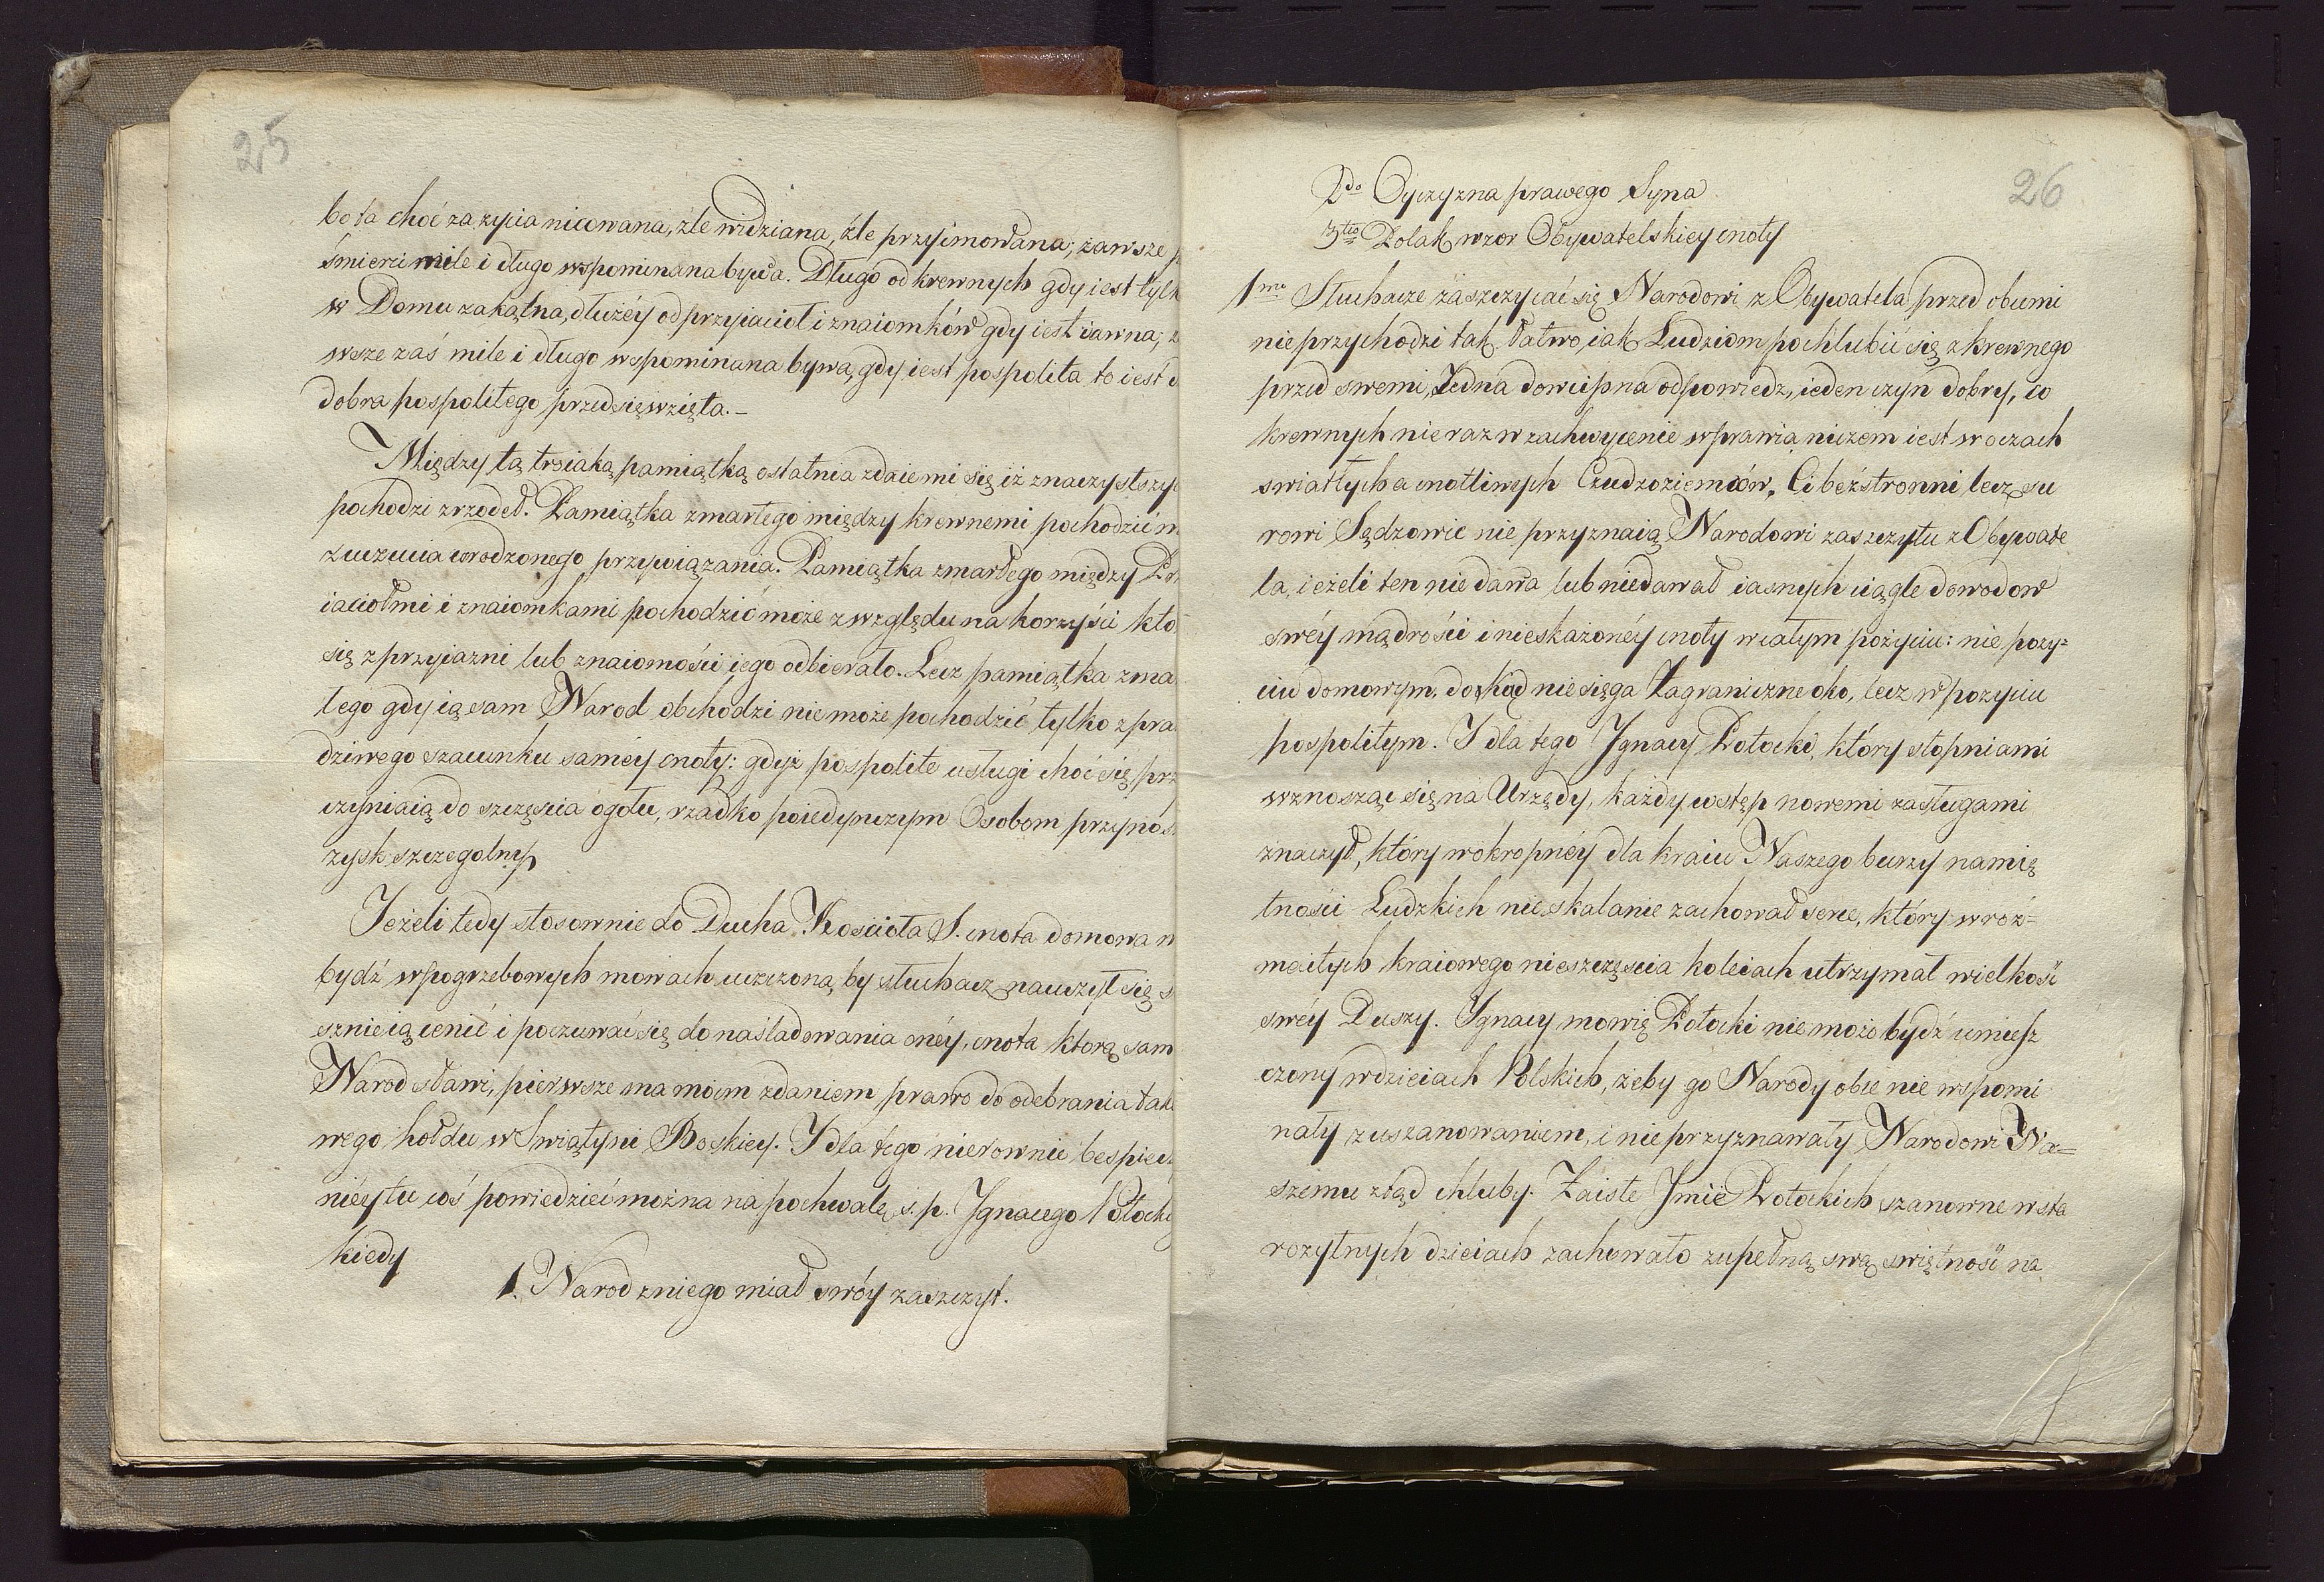 25
bo ta choć za zycia nicowana, źle widziana, źle przyimowana; zawsze
śmierci mile i długo wspominana bywa. Długo od krewnych gdy iest tylk
w Domu zakątna, dłużéy od przyiaciol i znaiomków gdy iest iawna;
wsze zaś mile i długo wspominana bywa, gdy iest pospolita to iest
dobra pospolitego przedsięwzięta.–
Między tą troiaką pamiątką ostatnia zdaie mi się iż znaczystszych
pochodzi zrzodeł. Pamiątka zmarłego między krewnemi pochodzić m
z uczucia wrodzonego przywiązania. Pamiątka zmarłego między Prz
iaciołmi i znaiomkami pochodzić może z względu na korzyści kto
się z przyiazni lub znaiomości iego odbierało. Lecz pamiątka zma
łego gdy ią sam Narod obchodzi nie może pochodzić tylko z pra
dziwego szacunku saméy cnoty: gdyż pospolite usługi choć się prz
czyniaią do szczęscia ogołu, rzadko poiedynczym Osobom przynos
zysk szczegolny
Jeżeli tedy stosownie do Ducha Kościoła S. cnota domowa m
bydź w pogrzebowych mowach uczczona, by słuchacz nauczył się s
sznie ią cenić i poczuwać się do naśladowania onéy, cnota ktorą sam
Narod sławi, pierwsze ma moim zdaniem prawo do odebrania tako
wego hołdu w Swiątyni Boskiey. I dla tego nierownie bespiec
niéy tu coś powiedzieć można na pochwałę ś. p. Ignacego Potocki
kiedy
1. Narod z niego miał swóy zaszczyt.
26
2do Oyczyzna prawego Syna
3tio Polak wzor Obywatelskiey cnoty
1mo Słuchacze zaszczycać się Narodowi z Obywatela przed obcemi
nie przychodzi tak łatwo, iak Ludziom pochlubić się z krewnego
przed swemi, Jedna dowcipna odpowiedz, ieden czyn dobry, co
krewnych nie raz w zachwycenie wprawia niczem iest w oczach
swiatłych a cnotliwych Cudzoziemców. Ci bezstronni lecz su
rowi Sędzowie nie przyznaią Narodowi zaszczytu z Obywate
la, ieżeli ten nie dawa lub niedawał iasnych ciągle dowodow
swéy mądrości i nieskażonéy cnoty w całym pożyciu: nie pozy=
ciu domowym, dokąd nie sięga Zagraniczne oko, lecz w pozyciu
pospolitym. I dla tego Ignacy Potocki, który stopniami
wznosząc się na Urzędy, każdy wstęp nowemi zasługami
znaczył, który w okropnéy dla kraiu Naszego burzy namię
tności Ludzkich nieskalanie zachował serce, który w roz=
maitych kraiowego nieszczęscia koleiach utrzymał wielkość
swéy Duszy. Ignacy mowię Potocki nie może bydź umiesz
czony w dzieiach Polskich, żeby go Narody obce nie wspomi
nały z uszanowaniem, i nie przyznawały Narodowi Na=
szemu ztąd chluby. Zaiste Jmie Potockich szanowne w sta
rozytnych dzieiach zachowało zupełną swą swiętność na